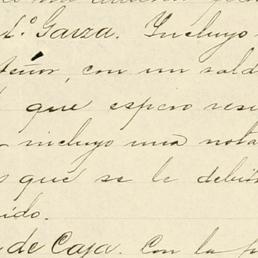 Al.º Garza. Incluyo
Señor, con un sald
que espero resi
incluyo una nota
s que se le debi
ido.
de Caja. Con la p